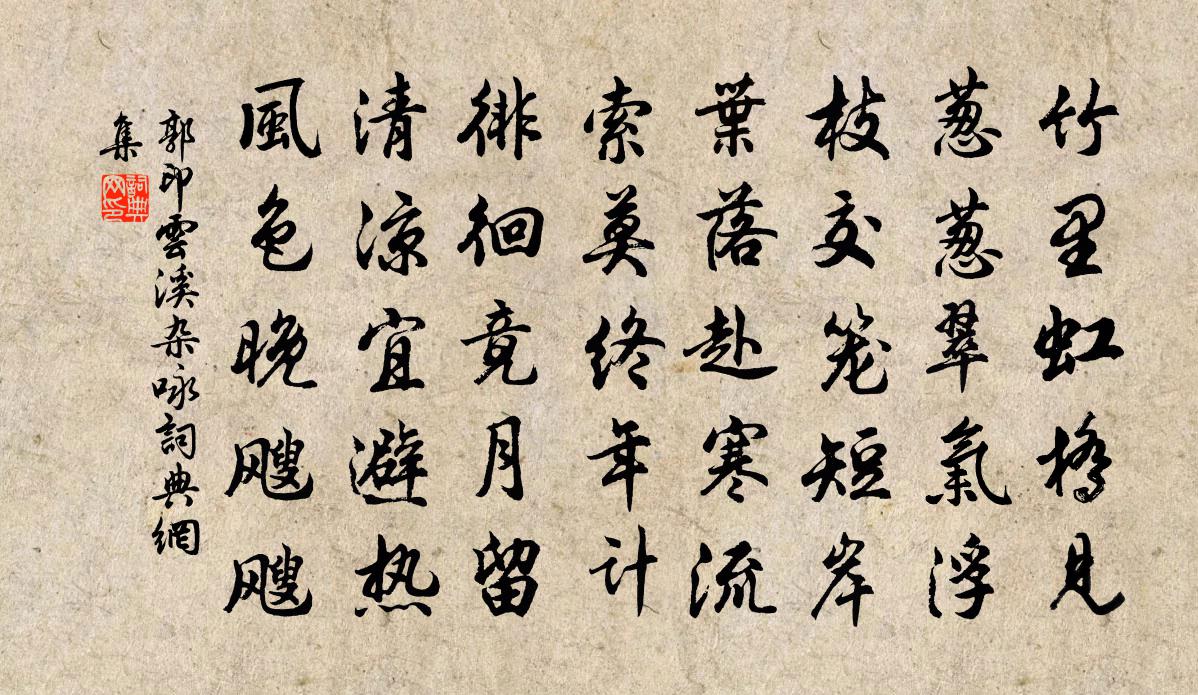 竹里虹橋見
葱葱翠氣浮
枝交笼短岸
葉落赴寒流
索莫终年计
徘徊竟月留
清凉宜避热
風色晚飕飕
郭印雲溪杂咏詞典網
集
詞典
网印